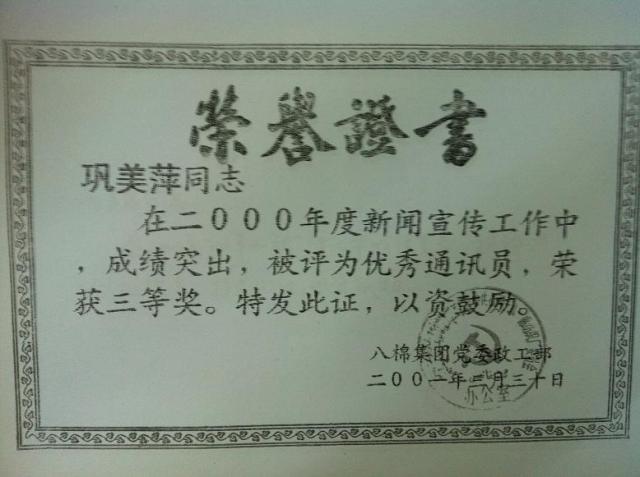 榮譽證書
巩美萍同志
在二000年度新闻宣传工作中
，成绩突出，被评为优秀通讯员，荣
获三等奖。特发此证，以资鼓励。
八棉集团党委政工部
二00一年三月三十日
办公室